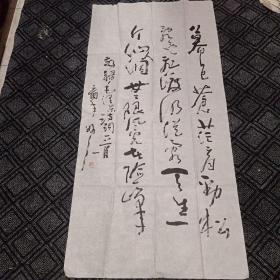 暮色苍茫看劲松
乱云飞渡仍从容天生一
个仙人洞无限风光在险峰
毛泽东诗词一首